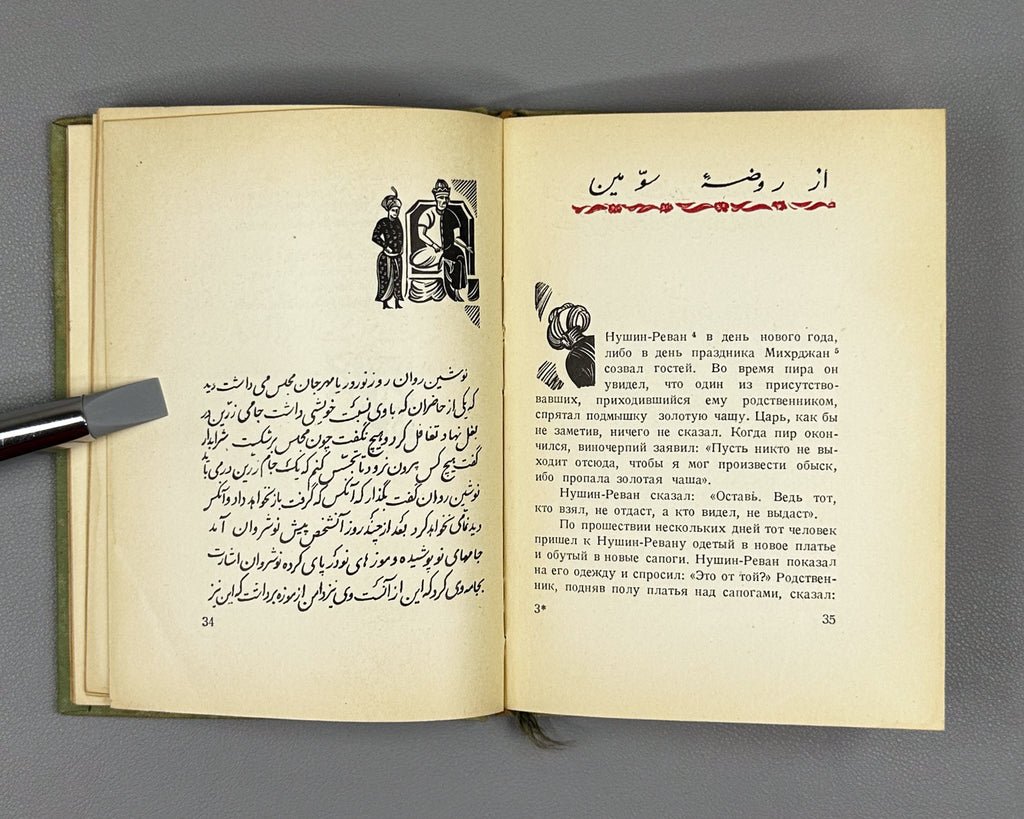 نوشین روان روز نوروز یا مهرجان مجلس می داشت دید
که یکی از حاضران که با وی نسبت خویشی داشت جامی زرین در
بغل نهاد تغافل کرد و هیچ نگفت چون مجلس برشکست شرابدار
گفت هیچ کس بیرون نرود تا تجسس کنم که یک جام زرین در می باید
نوشین روان گفت بگذار که آنکس که گرفت باز نخواهد داد و آنکس
دید نمامی نخواهد کرد بعد از چند روز آن شخص پیش نوشروان آمد
جامهای نو پوشیده و موزه های نو در پای کرده نوشروان اشارت
بجامه وی کرد که این از آنست وی نیز دامن از موزه برداشت که این نیز
34
از روضهٔ سوّمین
Нушин-Реван ⁴ в день нового года,
либо в день праздника Михрджан ⁵
созвал гостей. Во время пира он
увидел, что один из присутство-
вавших, приходившийся ему родственником,
спрятал подмышку золотую чашу. Царь, как бы
не заметив, ничего не сказал. Когда пир окон-
чился, виночерпий заявил: «Пусть никто не вы-
ходит отсюда, чтобы я мог произвести обыск,
ибо пропала золотая чаша».
Нушин-Реван сказал: «Оставь. Ведь тот,
кто взял, не отдаст, а кто видел, не выдаст».
По прошествии нескольких дней тот человек
пришел к Нушин-Ревану одетый в новое платье
и обутый в новые сапоги. Нушин-Реван показал
на его одежду и спросил: «Это от той?» Родствен-
ник, подняв полу платья над сапогами, сказал:
3*
35